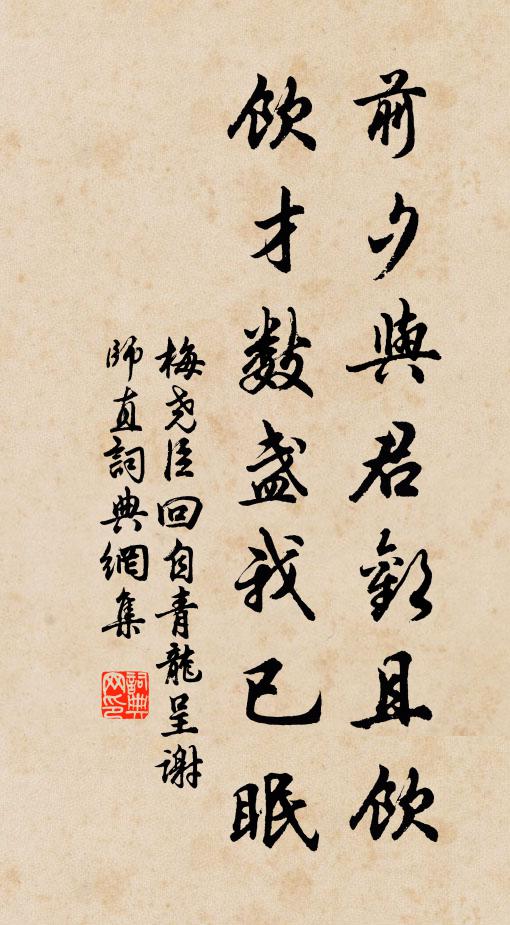 前夕與君歡且飲
飲才數盞我已眠
梅堯臣回自青龍呈謝
師直詞典網集
詞典
网印